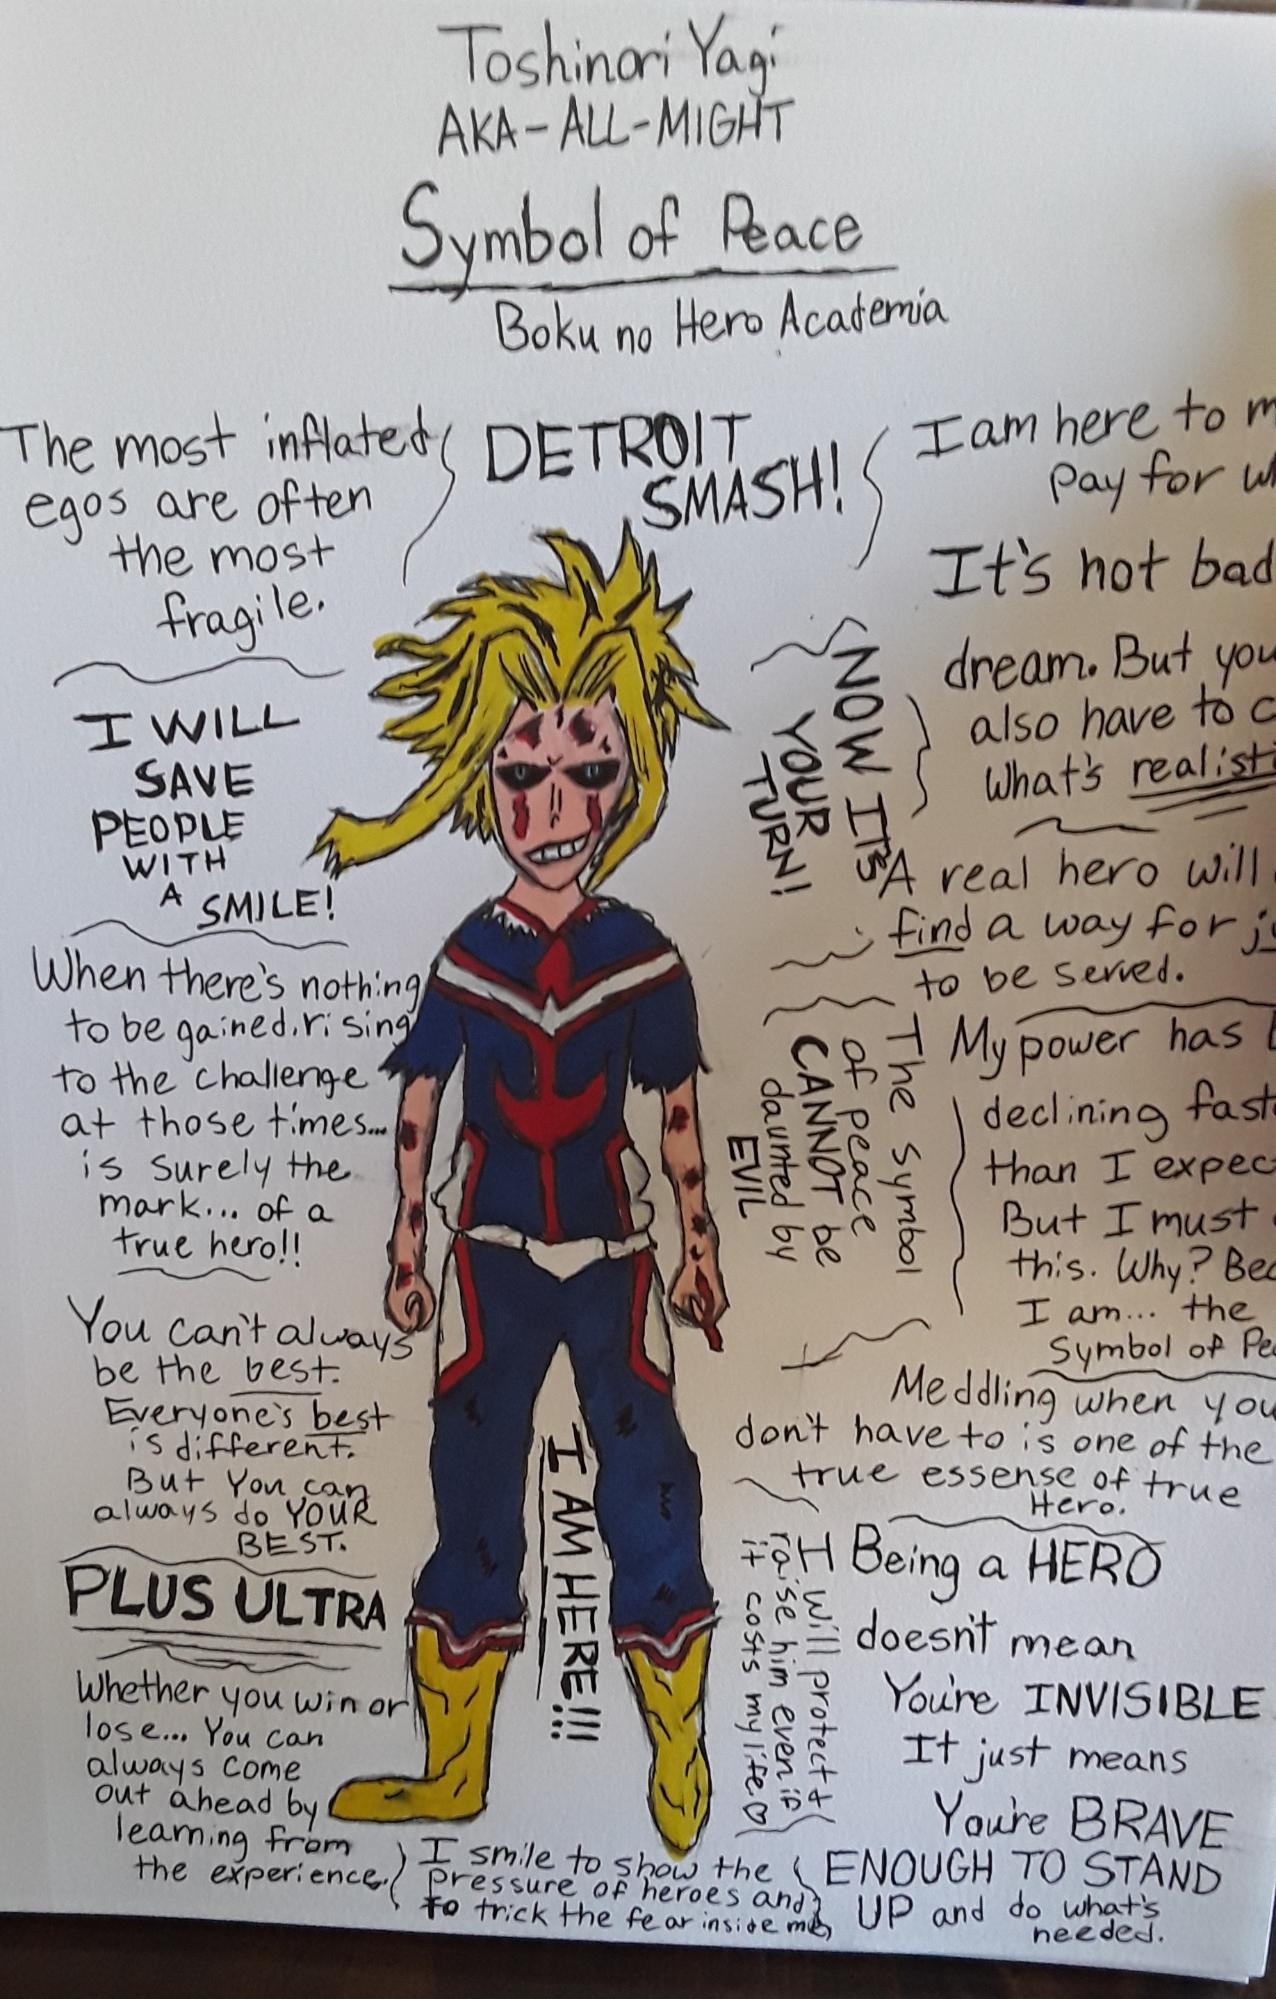 Toshinori Yagi
AKA-ALL-MIGHT
Symbol of Peace
Boku no Hero Academia
The most inflated
egos are often
the most
fragile.
I WILL
SAVE
PEOPLE
WITH
A SMILE!
When there's nothing
to be gained, rising
to the challenge
at those times...
is surely the
mark... of a
true hero!!
You can't always
be the best.
Everyone's best
is different.
But You can
always do YOUR
BEST.
PLUS ULTRA
Whether you win or
lose... You can
always come
out ahead by
learning from
the experience.
DETROIT
SMASH!
I AM HERE!!!
I smile to show the
pressure of heroes and
to trick the fear inside me
NOW IT'S
YOUR
TURN!
The Symbol
of peace
CANNOT be
daunted by
EVIL
I will protect &
raise him even if
it costs my life ♡
I am here to
pay for
It's not bad
dream. But you
also have to
What's
A real hero will
find a way for
to be served.
My power has
declining
than I
But I must
this. Why?
I am... the
Symbol of
Meddling when you
don't have to is one of the
true essense of true
Hero.
Being a HERO
doesn't mean
You're INVISIBLE
It just means
You're BRAVE
ENOUGH TO STAND
UP and do what's
needed.